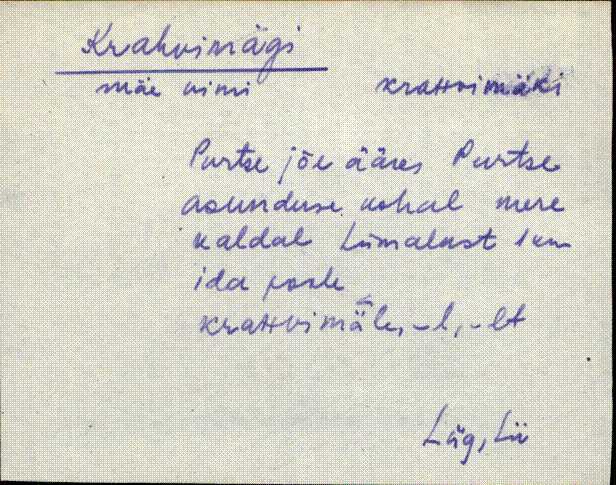 Krahvimägi
mäe nimi kraHvimäki
Purtse jõe ääres Purtse
asunduse kohal mere
kaldal Liimalast 1 km
ida poole
kraHvimäle, -l, -lt
Lüg, Lii